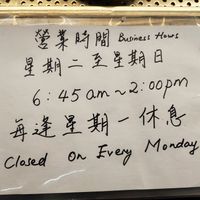 營業時間 Business Hours
星期二至星期日
6:45am~2:00pm
每逢星期一休息
Closed On Every Monday